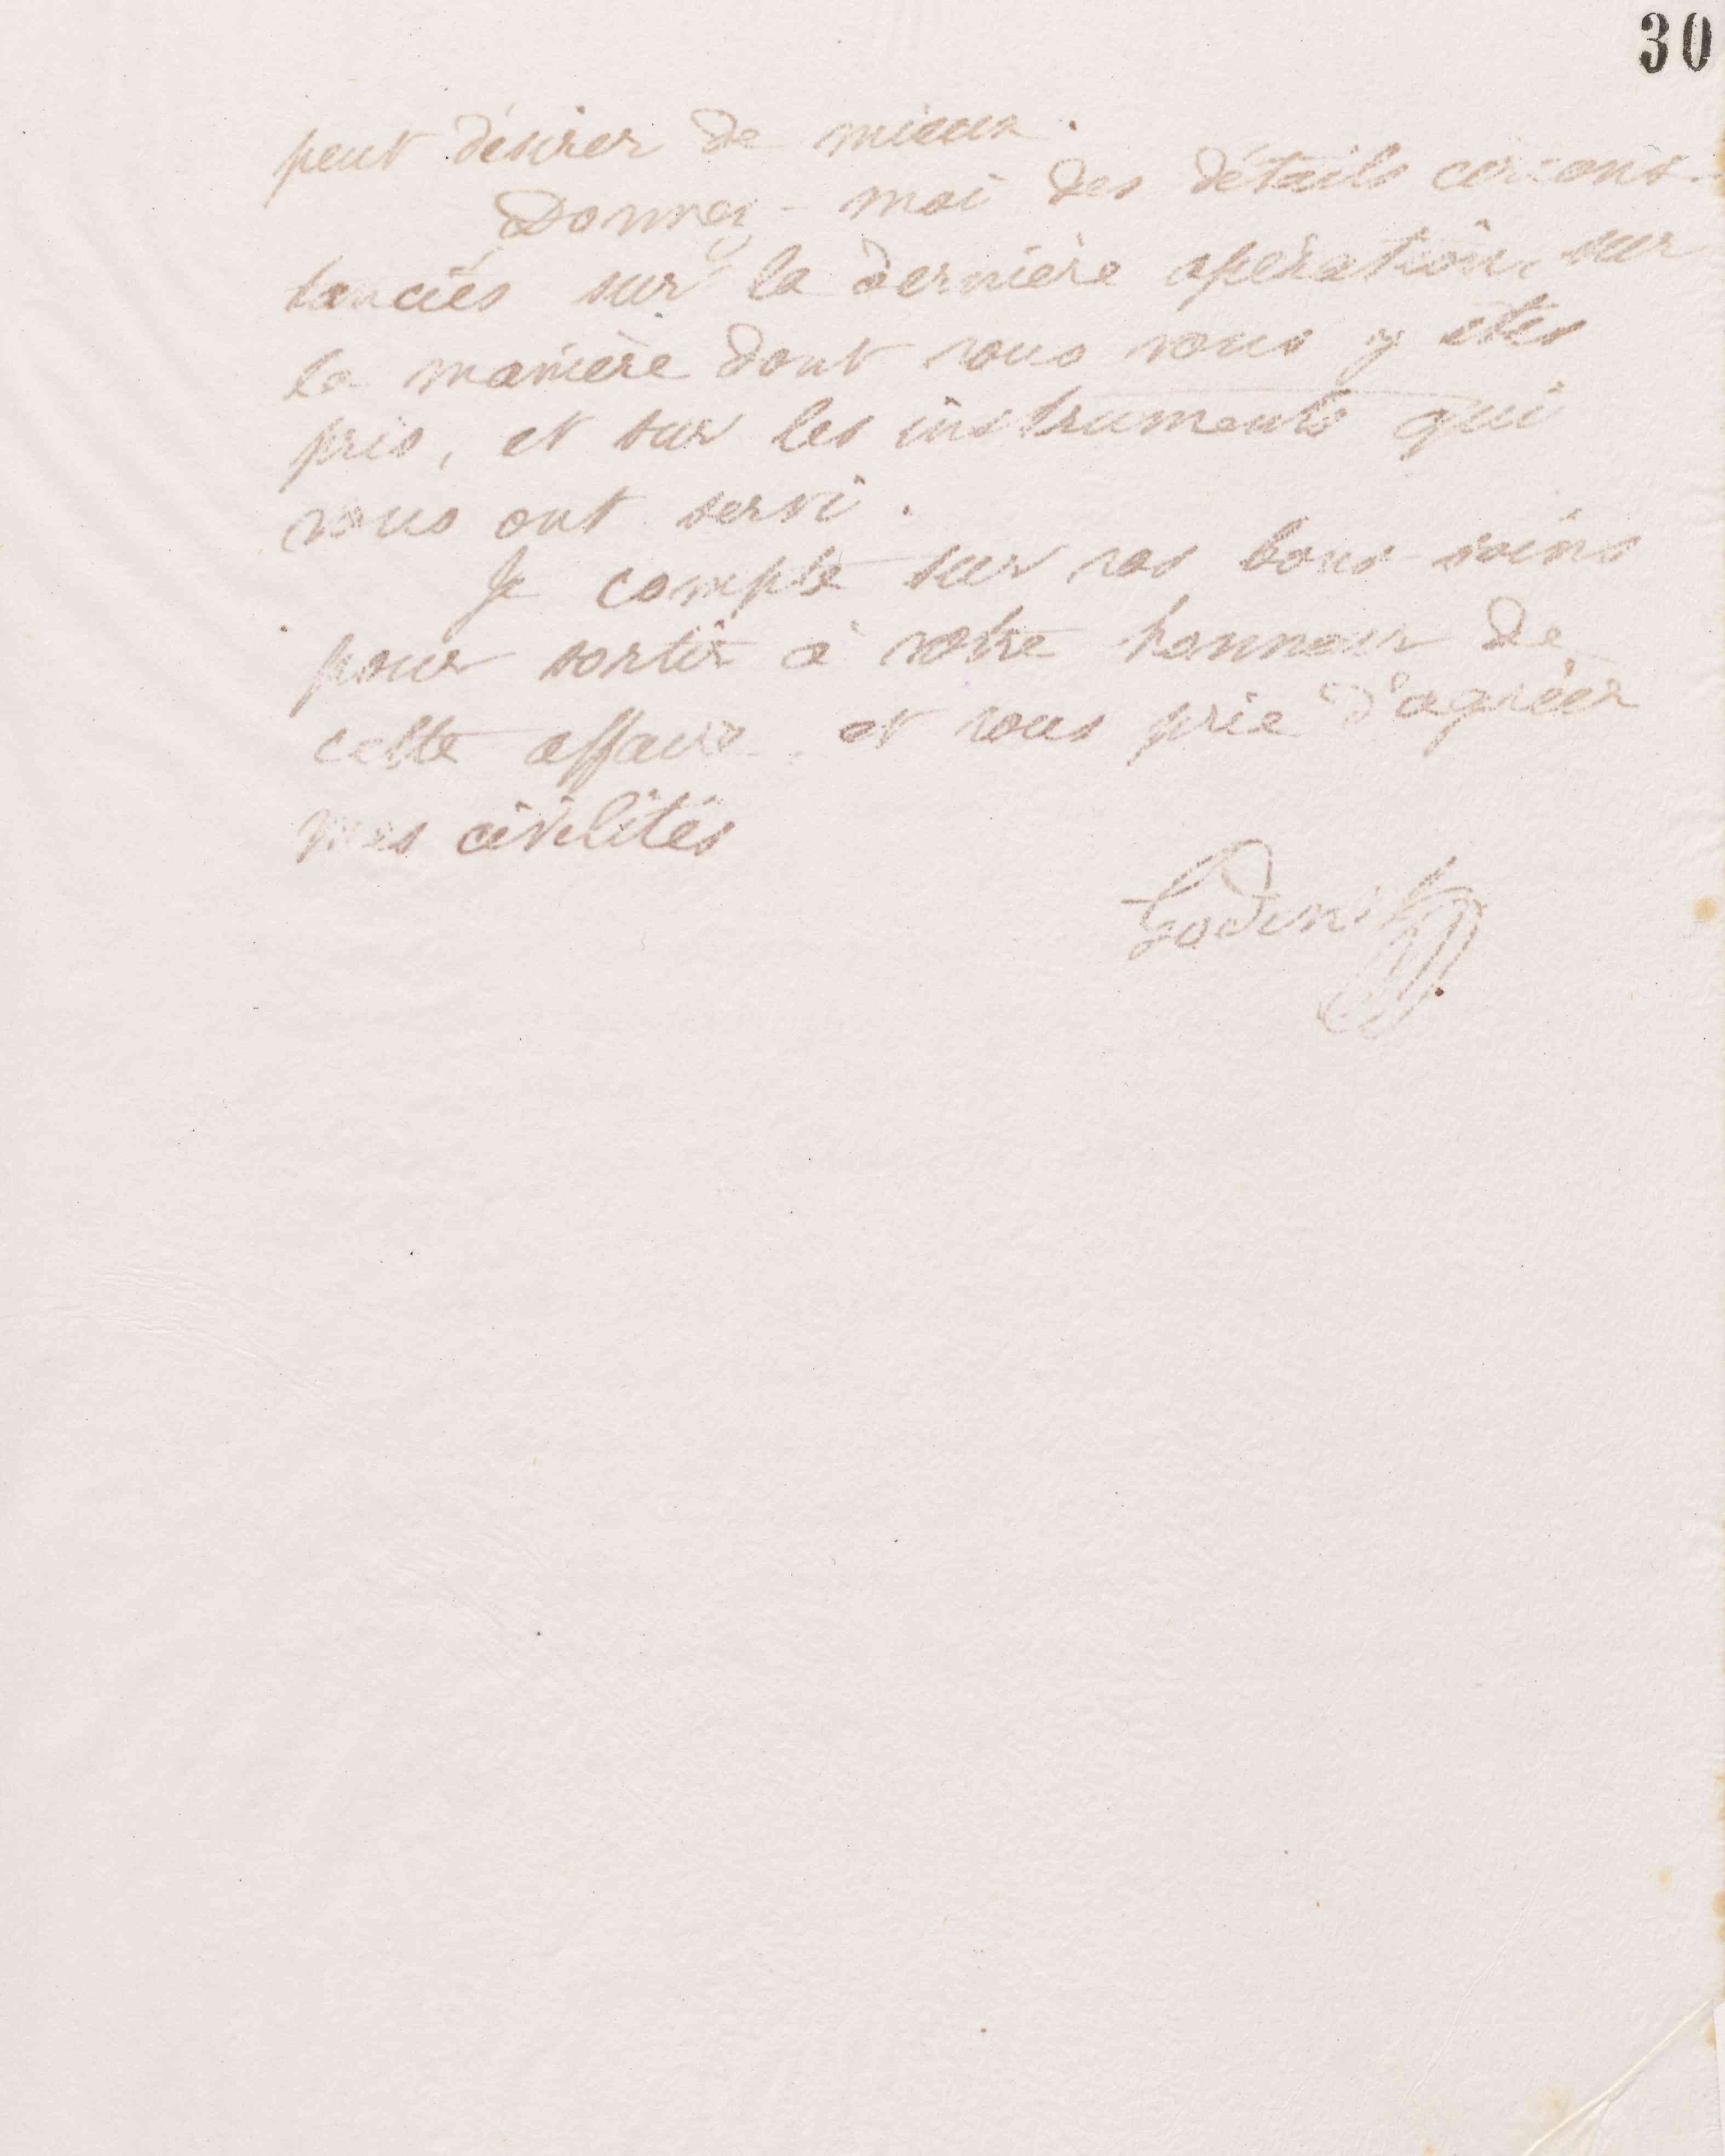 30
peut désirer de mieux.
Donnez-moi des détails circons-
tanciés sur la dernière opération, sur
la manière dont vous vous y êtes
pris, et sur les instruments qui
vous ont servi.
Je compte sur vos bons soins
pour sortir à votre honneur de
cette affaire et vous prie d'agréer
mes civilités
Godin